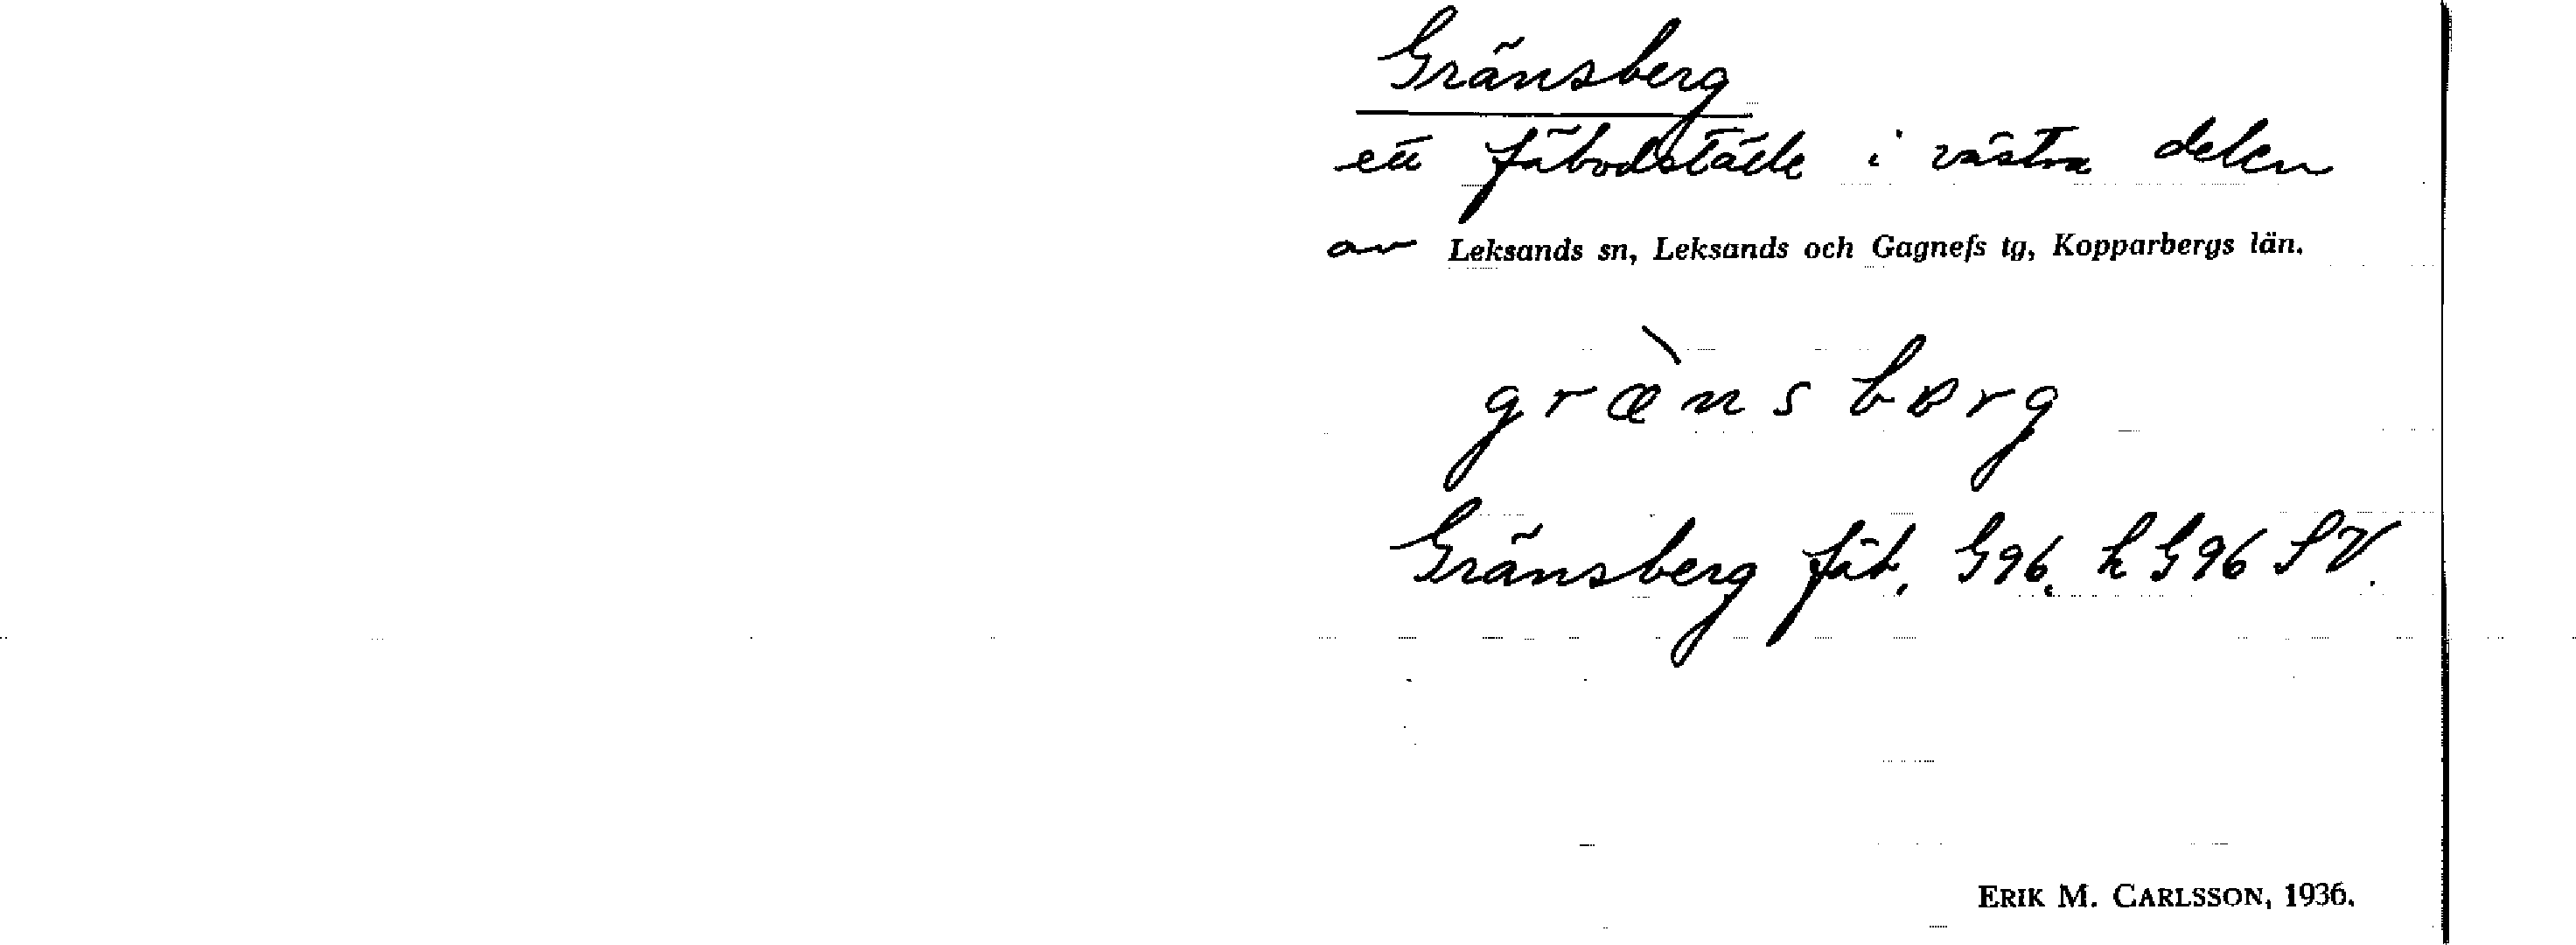 Gränsberg
ett fäbodställe i västra delen
av Leksands sn, Leksands och Gagnefs tg, Kopparbergs län.
græ̀nsbərg
Gränsberg fäb. G96. h G96 SV.
ERIK M. CARLSSON, 1936.